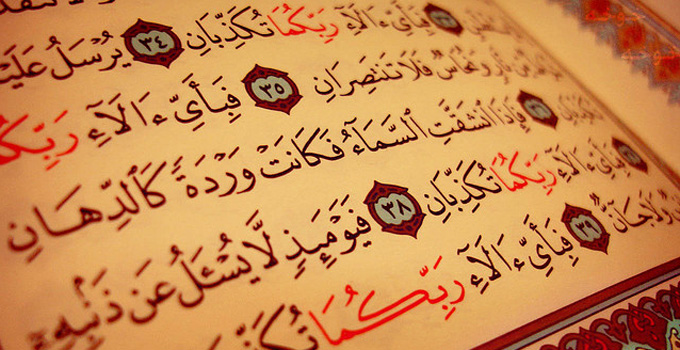 فَبِأَىِّ ءَالَآءِ رَبِّكُمَا تُكَذِّبَانِ ٣٤ يُرْسَلُ
وَنُحَاسٌ فَلَا تَنتَصِرَانِ ٣٥ فَبِأَىِّ ءَالَآءِ رَبِّكُمَا
فَإِذَا ٱنشَقَّتِ ٱلسَّمَآءُ فَكَانَتْ وَرْدَةً كَٱلدِّهَانِ
فَبِأَىِّ ءَالَآءِ رَبِّكُمَا تُكَذِّبَانِ ٣٨ فَيَوْمَئِذٍ لَّا يُسْـَٔلُ عَن ذَنۢبِهِۦٓ
وَلَا جَآنٌّ ٣٩ فَبِأَىِّ ءَالَآءِ رَبِّكُمَا